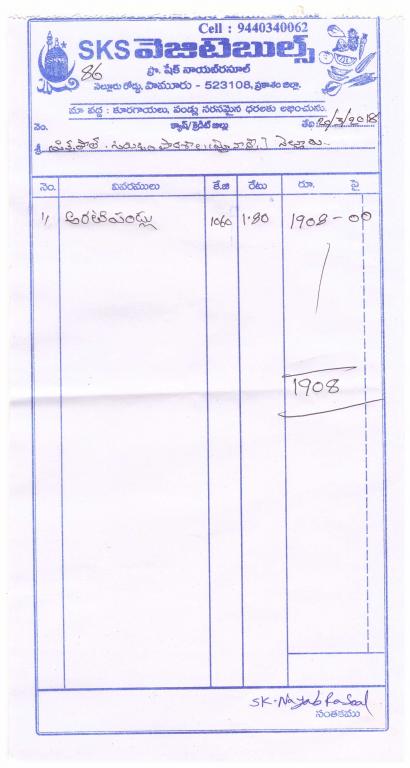 Cell : 9440340062
SKS వెజిటెబుల్స్
86
ప్రొ. షేక్ నాయబ్‌రసూల్
నెల్లూరు రోడ్డు, పామూరు - 523108, ప్రకాశం జిల్లా.
మా వద్ద : కూరగాయలు, పండ్లు సరసమైన ధరలకు లభించును.
నెం. క్యాష్/క్రెడిట్ బిల్లు తేది 20/3/2018
శ్రీ నెల్లూరు
నెం. వివరములు కే.జి రేటు రూ. పై
1/ అరటిపండ్లు 1060 1.80 1908-00
1908
SK. Nayab Rasool
సంతకము